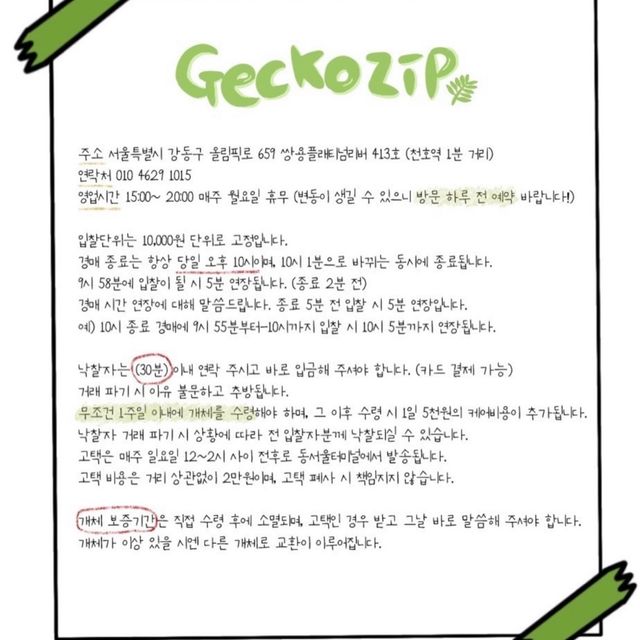 GeckoZip
주소 서울특별시 강동구 올림픽로 659 쌍용플래티넘리버 413호 (천호역 1분 거리)
연락처 010 4629 1015
영업시간 15:00~ 20:00 매주 월요일 휴무 (변동이 생길 수 있으니 방문 하루 전 예약 바랍니다!)
입찰단위는 10,000원 단위로 고정입니다.
경매 종료는 항상 당일 오후 10시이며, 10시 1분으로 바뀌는 동시에 종료됩니다.
9시 58분에 입찰이 될 시 5분 연장됩니다. (종료 2분 전)
경매 시간 연장에 대해 말씀드립니다. 종료 5분 전 입찰 시 5분 연장입니다.
예) 10시 종료 경매에 9시 55분부터-10시까지 입찰 시 10시 5분까지 연장됩니다.
낙찰자는 (30분) 이내 연락 주시고 바로 입금해 주셔야 합니다. (카드 결제 가능)
거래 파기 시 이유 불문하고 추방됩니다.
무조건 1주일 이내에 개체를 수령해야 하며, 그 이후 수령 시 1일 5천원의 케어비용이 추가됩니다.
낙찰자 거래 파기 시 상황에 따라 전 입찰자분께 낙찰되실 수 있습니다.
고택은 매주 일요일 12~2시 사이 전후로 동서울터미널에서 발송됩니다.
고택 비용은 거리 상관없이 2만원이며, 고택 폐사 시 책임지지 않습니다.
개체 보증기간은 직접 수령 후에 소멸되며, 고택인 경우 받고 그날 바로 말씀해 주셔야 합니다.
개체가 이상 있을 시엔 다른 개체로 교환이 이루어집니다.